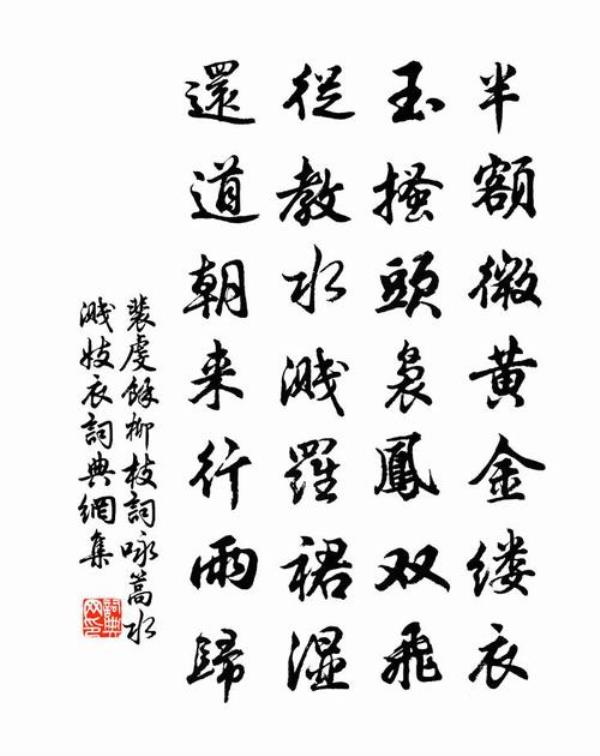 半額微黄金缕衣
玉搔頭袅鳳双飛
從教水溅羅裙湿
還道朝来行雨歸
裴虔餘柳枝詞咏篙水
溅妓衣詞典網集
詞典网印